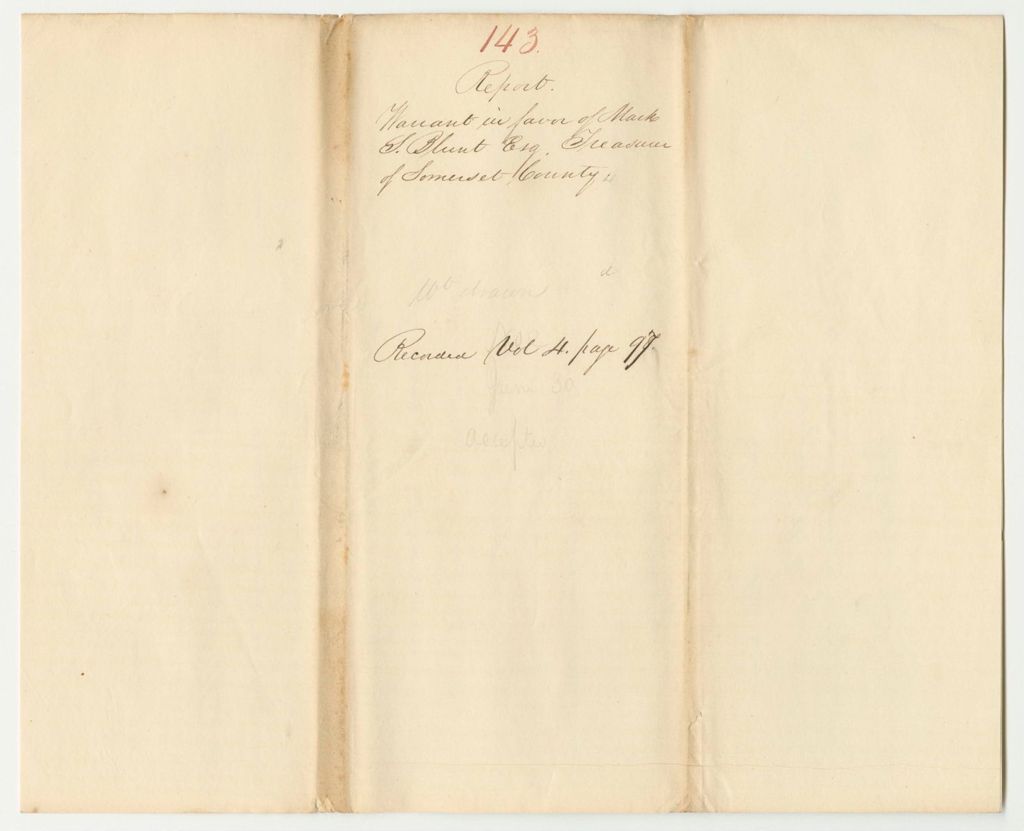 143.
Report.
Warrant in favor of Mark
S. Blunt Esq. Treasurer
of Somerset County.
Wt drawn
Recorded Vol 4. page 97.
June 30
Accepted